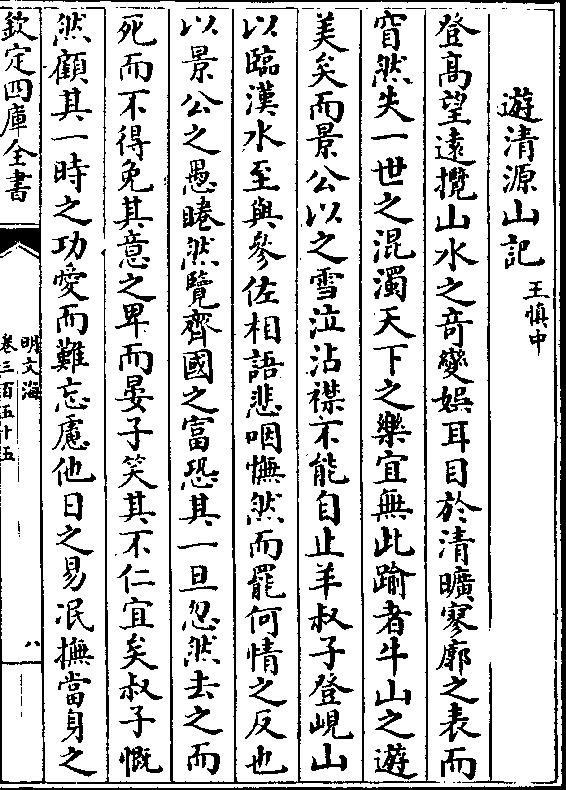 遊清源山記 王慎中
登髙望遠攬山水之竒變娯耳目於清曠寥廓之表而
窅然失一世之混濁天下之樂宜無此踰者牛山之遊
美矣而景公以之雪泣沾襟不能自止羊叔子登峴山
以臨漢水至與參佐相語悲咽憮然而罷何情之反也
以景公之愚睠然覽齊國之富恐其一旦忽然去之而
死而不得免其意之卑而晏子笑其不仁宜矣叔子慨
然顧其一時之功愛而難忘慮他日之易泯撫當身之
欽定四庫全書
明文海
卷三百五十五
八